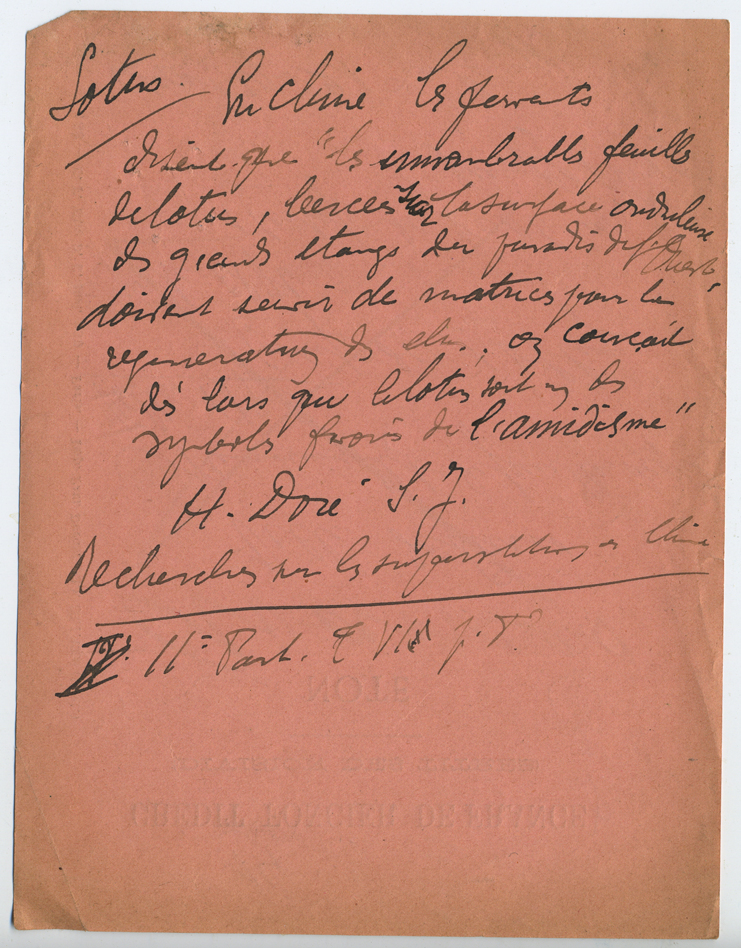 Lotus. En Chine les fervents
disent que "les innombrables feuilles
de lotus, bercées sur la surface onduleuse
des grands étangs du paradis de l'Ouest,
doivent servir de matrices pour la
régénération des élus, on conçoit
dès lors que le lotus soit un des
symboles favoris de l'amidisme"
H. Doré S. J.
Recherches sur les superstitions en Chine
II<sup>e</sup> Part. T VIII p.